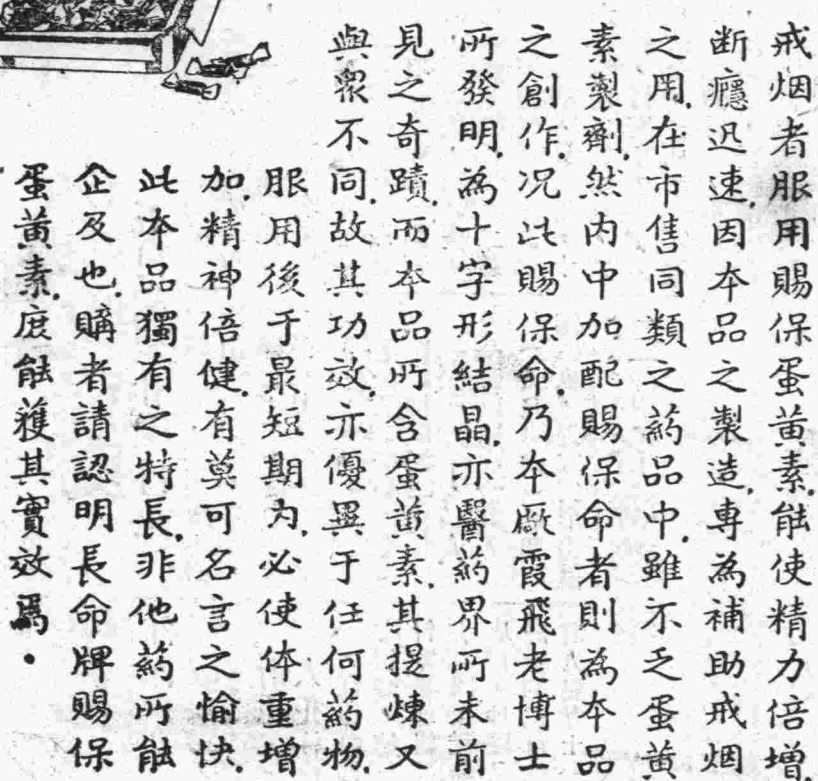 戒烟者服用賜保蛋黄素.能使精力倍增.
断癮迅速.因本品之製造.專為補助戒烟
之用.在市售同類之葯品中.雖不乏蛋黄
素製劑.然内中加配賜保命者則為本品
之創作.况此賜保命.乃本廠霞飛老博士
所發明.為十字形結晶.亦醫葯界所未前
見之奇蹟.而本品所含蛋黄素.其提煉又
與眾不同.故其功效.亦優異于任何葯物.
服用後于最短期内.必使体重增
加.精神倍健.有莫可名言之愉快.
此本品獨有之特長.非他葯所能
企及也.購者請認明長命牌賜保
蛋黄素.庶能獲其實效焉.